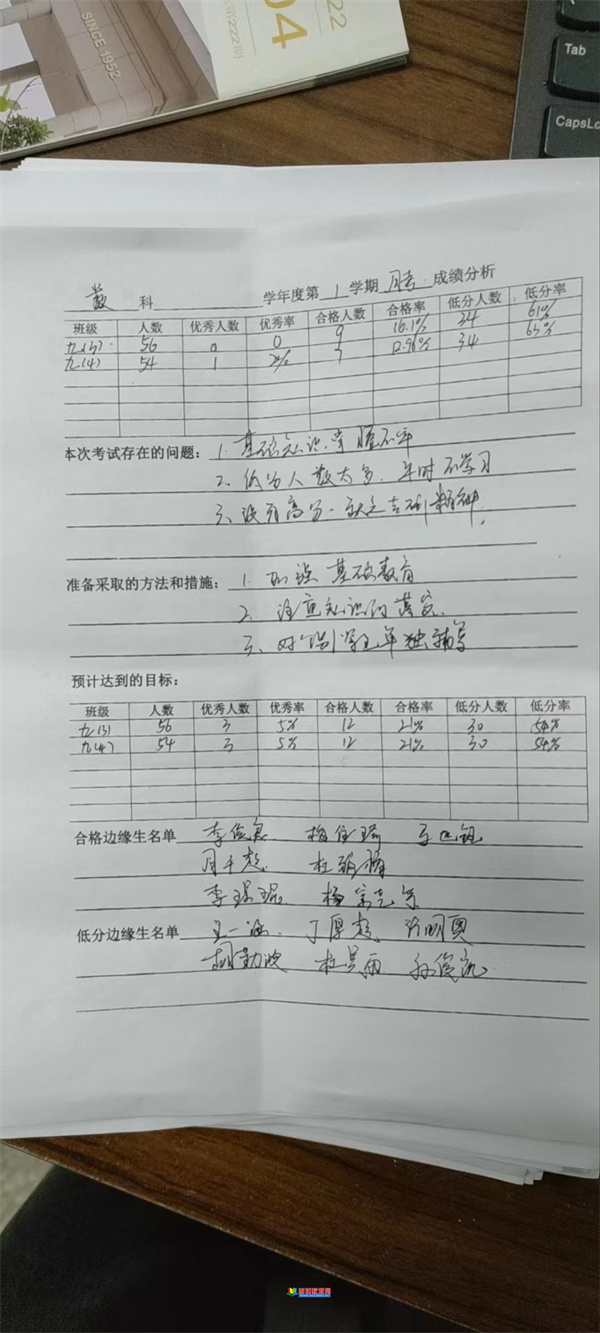 SINCE 1952
222
04
Tab
CapsLo
数 科 学年度第 1 学期 月考 成绩分析
班级 人数 优秀人数 优秀率 合格人数 合格率 低分人数 低分率
九(3) 56 0 0 9 16.1% 34 61%
九(4) 54 1 2% 7 12.96% 34 63%
本次考试存在的问题: 1. 基础知识掌握不牢
2. 低分人数太多, 平时不学习
3. 没有高分, 缺乏吃苦精神
准备采取的方法和措施: 1. 加强基础教育
2. 注重知识的落实.
3. 对个别学生单独辅导
预计达到的目标:
班级 人数 优秀人数 优秀率 合格人数 合格率 低分人数 低分率
九(3) 56 3 5% 12 21% 30 54%
九(4) 54 3 5% 12 21% 30 54%
合格边缘生名单
低分边缘生名单 王一涵 丁厚超 许明奥
胡勤政 杜昊雨 孙俊凯